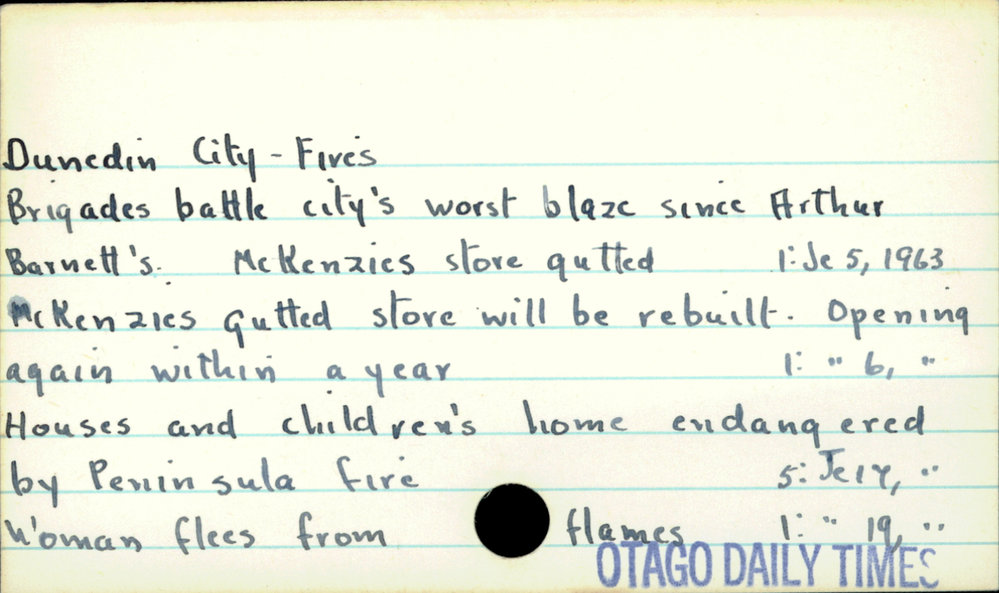 Dunedin City - Fires
Brigades battle city's worst blaze since Arthur
Barnett's. McKenzies store gutted 1: Je 5, 1963
McKenzies gutted store will be rebuilt. Opening
again within a year 1: " 6, "
Houses and children's home endangered
by Peninsula fire 5: Je 14, "
Woman flees from flames 1: " 19, "
OTAGO DAILY TIMES